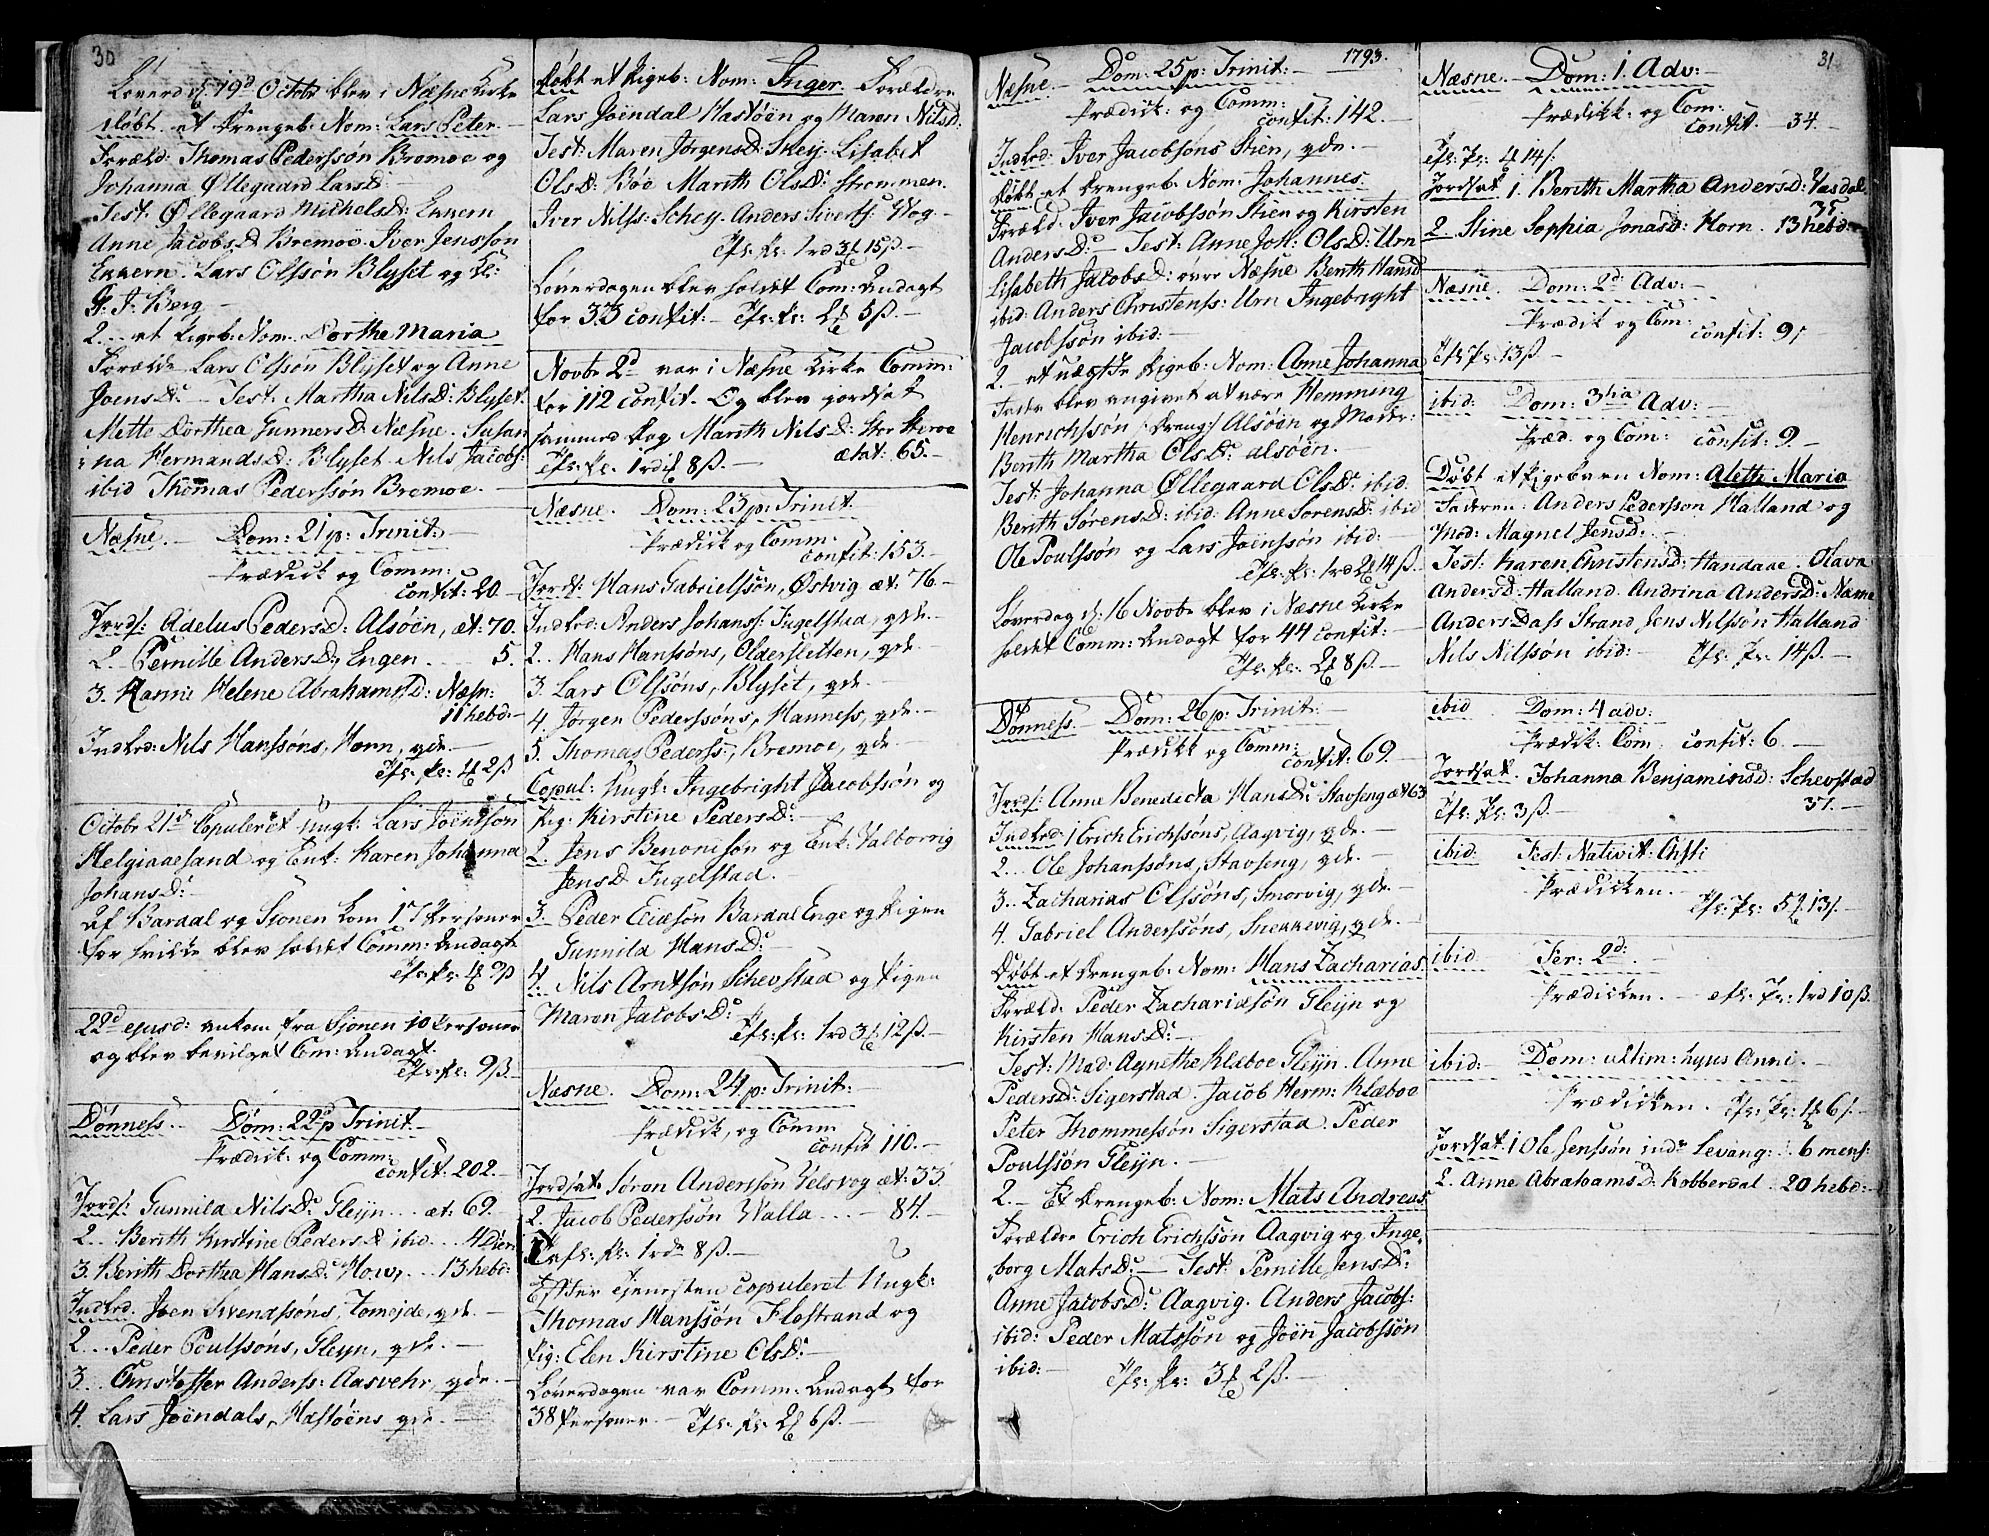 30
Løverd: d: 19d Octbr blev i Næsne Kirke
døbt et Drengeb: Nom: Lars Peter.
Foræld: Thomas Pederssøn Bremoe og
Johanna Øllegaard LarsD:
Test: Øllegaard MichelsD: Ennern
Anne JacobsD Bremoe. Iver Jensson
Ennern. Lars Olssøn Blyset og Kl:
G: J: Berg —
2... et Pigeb: Nom: Dorthe Maria
Foræld: Lars Olssøn Blyset og Anne
JoensD: — Test: Martha NilsD: Blyset
Mette Dorthea GunnersD: Næsne. Susan
na HermandsD: Blyset. Nils Jacobs:
ibid Thomas Pederssøn Bremoe.
Næsne. — Dom: 21 p: Trinit: —
Prædick og Comm:
confit: 20. —
Jords: Adelus PedersD: Alsøen, æt: 70.
2. Pernille AndersD: Engen .... 5.
3. Hanne Helene AbrahamsD: Næsn:
11 hebd: —
Indled: Nils Hanssøns, Horn, qde. —
Tfl: Pe: 4 2ß
Octobr 21de Copuleret Ungk: Lars Joensson
Helgiaaesand og Enk: Karen Johanna
JohansD:
Af Bardal og Sjonen kom 17 Personer
for hvilke blev holdet Comm: Andagt
Tfl: Pe: 4 9ß
22d ejusd: ankom fra Sjonen 10 Personer
og blev bevilget Com: Andagt.
Tfl: Pe: 9ß —
Dønness. — Dom: 22d p Trinit —
Prædick: og Comm:
confit: 202. —
Jords: Gunnila NilsD: Gleyn ... æt: 69. —
2.. Berith Kirstine PedersD ibid .. 4 Dier
3. Berith Dorthea HansD: How, ... 13 hebd:
Indled. Joen Svendssøns, Tomejde, qde. —
2... Peder Poulssøns, Gleyn, qde. —
3.. Christoffer Anderss: Aasvehr, qde. —
4. Lars Joendals, Hastøens qde. —
Døbt et Pigeb: Nom: Inger. Forældre
Lars Joendal Hastøen og Maren NilsD:
Test: Maren JørgensD: Skey. Lisabet
OlsD: Böe Marith OlsD: Strommen.
Iver Nilss: Schey. Anders Siverts: Wog —
Tfl: Pe: 1 rd 3 15ß. —
Løverdagen blev holdet Com: Andagt
for 33 confit: — Tfl: Pe: 2 5ß. —
Novbr 2d var i Næsne Kirke Comm:
for 112 confit. Og blev jordsat
sammed Dag Marith NilsD: Stor Skroe
Tfl: Pe: 1 rd 8ß. — ætat: 65. —
Næsne. Dom: 23 p: Trinit.
Prædick og Comm:
confit: 153. —
Jords: Hans Gabrielssøn, Østvig æt: 76 —
Indled: Anders Johanss: Fugelstad, qde. —
2.. Hans Hanssøns, Oldersletten, qde —
3. Lars Olssøns, Blyset, qde. —
4. Jørgen Pederssøns, Hanness, qde. —
5. Thomas Pederss:, Bremoe, qde. —
Copul: Ungk: Ingebright Jacobssøn og
Pig: Kirstine PedersD: —
2. Jens Benonisøn og Enk: Valborrig
JensD Fugelstad. —
3. Peder Ericsøn Bardal Enge og Pigen
Gunnild HansD:
4. Nils Arntsøn Schevstad og Pigen
Maren JacobsD:
Tfl: Pe: 1 rd 3 12ß. —
Næsne. Dom: 24 p: Trinit: —
Prædick, og Comm
confit 110. —
Jordsat Søren Anderssøn Velsvog æt: 33
2. Jacob Pederssøn Walla ... — 84. —
Tfl: Pe: 1 rd 8ß. —
Efter Tjenesten copuleret Ungk:
Thomas Hanssøn Flostrand og
Pig: Elen Kirstine OlsD: —
Løverdagen var Comm: Andagt for
38 Personer — Tfl: Pe: 2 6ß. —
Næsne. — Dom: 25 p: Trinit: — 1793.
Prædick: og Comm:
confit: 142. —
Indled: Iver Jacobsøns Stien, qde. —
Døbt et Drengeb: Nom: Johannes
Foræld: Iver Jacobssøn Stien og Kirsten
AndersD: — Test: Anne Joh: OlsD: Urn
Lisabeth JacobsD: övre Næsne Berith HansD
ibid: Anders Christenss: Urn Ingebright
Jacobssøn ibid: —
2. — et uægte Pigeb: Nom: Anne Johanna
Fader blev angivet at være Hemming
Henrichssøn (: Dreng :) Alsøen og Moder:
Berith Martha OlsD: alsøen. —
Test: Johanna Øllegaard OlsD: ibid.
Berith SørensD: ibid: Anne SorensD: ibid
Ole Poulssøn og Lars Joenssøn ibid: —
Tfl: Pe: 1 rd 2 14ß. —
Løverdag d: 16 Novbr blev i Næsne Kirke
holdet Comm: Andagt for 44 confit: —
Tfl: Pe: 2 8ß. —
Dønness. — Dom: 26 p: Trinit: —
Prædikk og Comm:
confit: 69. —
Jords: Anne Benedicta HansD: Stavseng æt 63
Indled: 1 Erich Erichssøns, Aagvig, qde. —
2... Ole Johanssøns, Stavseng, qde. —
3.. Zacharias Olssøns, Smorvig, qde —
4. Gabriel Anderssøns, Snekkevig, qde. —
Døbt et Drengeb: Nom: Hans Zacharias
Foræld: Peder Zachariasøn Gleyn og
Kirsten HansD:
Test: Mad: Agnethe Klæboe Gleyn. Anne
PedersD: Sigerstad. Jacob Herm: Klæboe
Peter Thommessøn Sigerstad. Peder
Poulssøn Gleyn. —
2. — Et Drengeb: Nom: Mats Andreas
Forældre Erich Erichssøn Aagvig og Inge
borg MatsD: — Test: Pernille JensD:
Anne JacobsD: Aagvig. Anders Jacobs:
ibid: Peder Matssøn og Joen Jacobssøn
ibid: — Tfl: Pe: 3 2ß. —
31
Næsne. — Dom: 1. Adv: —
Prædikk: og Com:
confit. 34. —
Tfl: Pe: 4 14ß:
Jordsat 1. Berith Martha AndersD: Vasdal
35
2. Stine Sophia JonasD: Horn. 13 hebd:
Næsne. Dom: 2d Adv: —
Prædik og Com:
confit: 91
Tfl Pe: 13ß —
ibid: Dom: 3tia Adv: —
Præd. og Com: confit: 9 —
Døbt et Pigebarn Nom: Aleth Maria
Faderen: Anders Pedersson Halland og
Mod: Magnel JensD: —
Test: Karen ChristensD: Handaae. Olava
AndersD: Halland. Andrina AndersD: Næsne
Anders Dass Strand Jens Nilssøn Halland
Nils Nilssøn ibid: — Tfl: Pe: 14ß. —
ibid Dom: 4 adv:
Prædik: Com. confit: 6. —
Jordsat. Johanna BenjaminsD: Schevstad
Tfl: Pe: 3ß. — 31. —
ibid: Fest: Nativit: Chsti
Prædicken. —
Tfl: Pe: 5 13ß. —
ibid Fer: 2d: —
Prædicken. — Tfl: Pe: 1 rd 10ß.
ibid: — Dom: ultim: hujus Anni. —
Prædicken. Tfl: Pe: 4 6ß. —
Jordsat 1 Ole Jenssøn ind: Levang: 6 mens:
2. Anne AbrahamsD: Kobberdal . 20 hebd: —